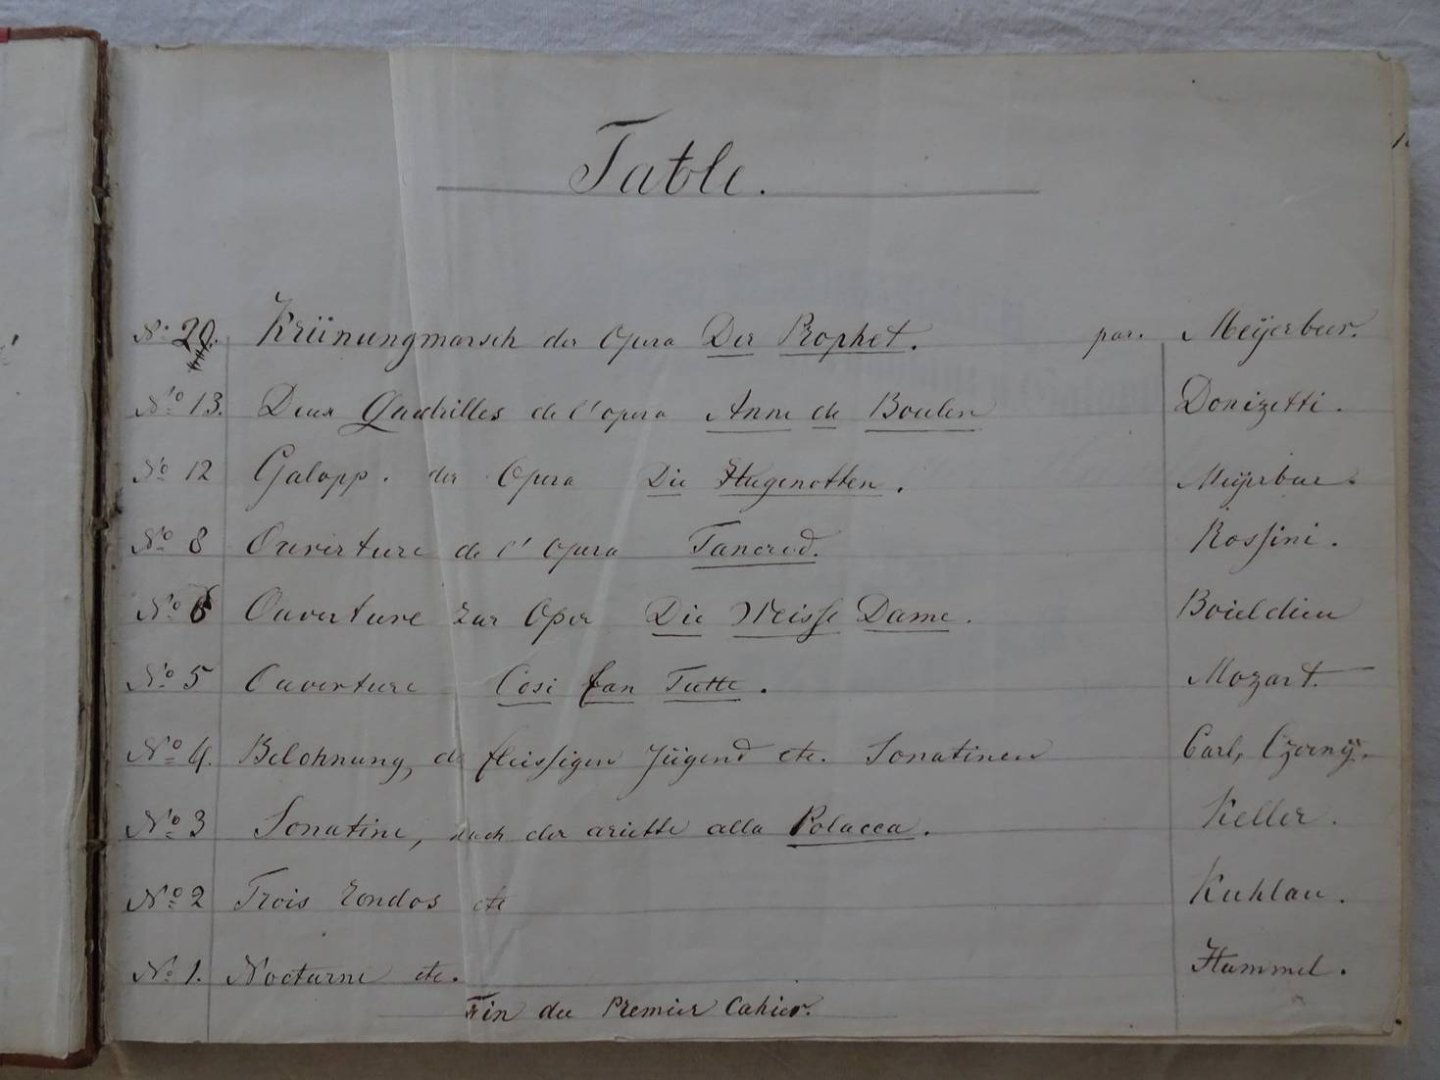 Table.
No 20. Krünungmarsch der Opera Der Prophet. par. Meÿerbeer.
No 13. Deux Quadrilles de l'opera Anne de Boulen Donizetti.
No 12 Galopp. der Opera Die Hugenotten. Meÿerbeer.
No 8 Ouverture de l'Opera Tancred. Rossini.
No 6 Ouverture zur Oper Die Weisse Dame. Boieldieu
No 5 Ouverture Cosi fan Tutte. Mozart.
No 4. Belohnung, de fleissigen Jügend etc. Sonatinen Carl, Czernÿ.
No 3 Sonatine, nach der ariette alla Polacca. Keller.
No 2 Trois rondos etc Kuhlau.
No 1. Nocturne etc. Hummel.
Fin du Premier Cahier.